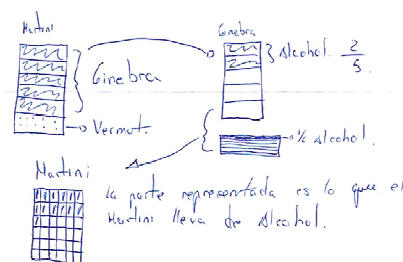 Martini
Ginebra
Ginebra
Alcohol. 2/5.
Vermut.
Alcohol.
Martini
la parte representada es lo que el
Martini lleva de Alcohol.